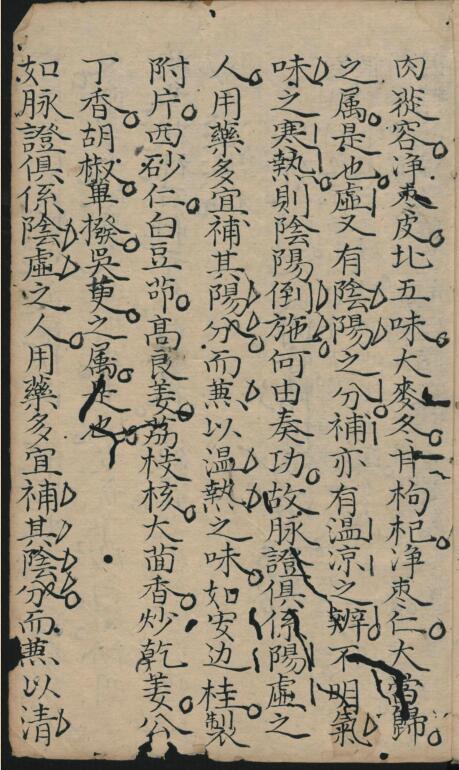 肉蓯容净枣皮北五味大麥冬甘枸杞净枣仁大當歸
之属是也虚又有陰陽之分補亦有温凉之辨不明氣
味之寒热則陰陽倒施何由奏功故脉證俱係陽虚之
人用藥多宜補其陽分而蕪以温熱之味如安边桂製
附片西砂仁白豆茆高良姜荔枝核大茴香炒乾姜公
丁香胡椒蓽撥吳萸之属是也
如脉證俱係陰虚之人用藥多宜補其陰分而蕪以清